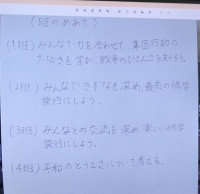 (班のめあて)
(1班) みんなで力を合わせて、集団行動の
大切さを学び、戦争のひさんさを知ろう。
(2班) みんなできずなを深め、最高の修学
旅行にしよう。
(3班) みんなとの交流を深め、楽しい修学
旅行にしよう。
(4班) 平和のとうとさについて考える。